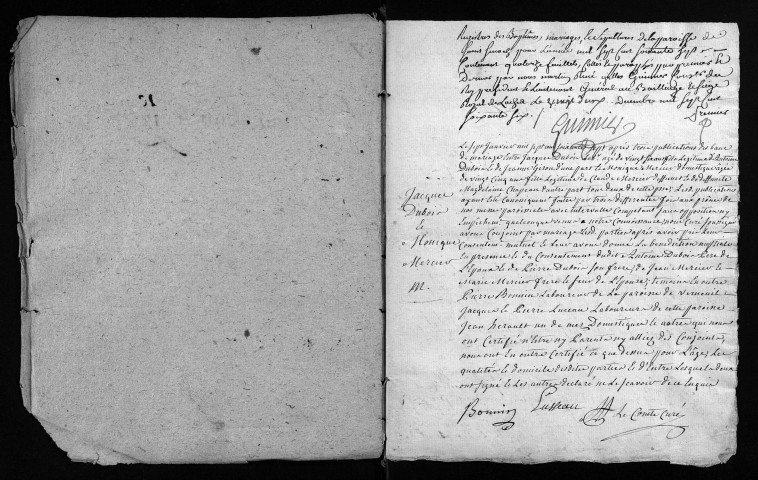 Registres des Baptêmes, mariages, et Sepultures de la paroisse de
pour l'année mil Sept Cent Soixante Sept
Contenant quatorze feuillets, Cottés et paraphés par premier et
Dernier par nous
Roy president et Lieutenant Général au Bailliage et Siege
Royal de Decembre mil Sept Cent
Soixante Six.
Premier
Quinnier
Le Sept Janvier mil Sept cent soixante Sept après trois publications des bans
de mariage Entre Jacques Dubois agé de vingt fils Legitime d'Antoine
Dubois et de Jeanne Giraud d'une part et Monique Mercier domestique agée
de vingt Cinq ans fille Legitime de Claude Mercier et deffunte
Magdelaine Chapeau d'autre part tous deux de cette paroisse Les publications
ayant été Canoniquement faites par trois differentes fois au prône de
nos messes paroissiales avec intervalle Competant sans opposition ny
Empechement quelconque venue à notre Connoissance nous Curé soussigné
avons Conjoint par mariage Lesd. parties après avoir pris Leur
Consentement mutuel et Leur avons donné La benediction nuptiale
En presence et du Consentement dudit Antoine Dubois Pere de
L'Epoux et de Pierre Dubois Son frere, de Jean Mercier et
Marie Mercier frere et soeur de L'Epouse; temoins En outre
Pierre Bonnin Laboureur de La paroisse de Verneuil
Jacques et Pierre Luceau Laboureurs de cette paroisse
Jean herault un de mes Domestiques et autres qui nous
ont Certifié n'Etre ny Parents ny alliés des Conjoints,
nous ont En outre Certifié ce que dessus pour L'âge, Les
qualités et domicile desdites parties et d'Entre Lesquels deux
ont signé et Les autres declaré ne Le scavoir de ce Enquis
Bonnin Lusseau Le Comte Curé
Jacques
Dubois
et
Monique
Mercier
m.